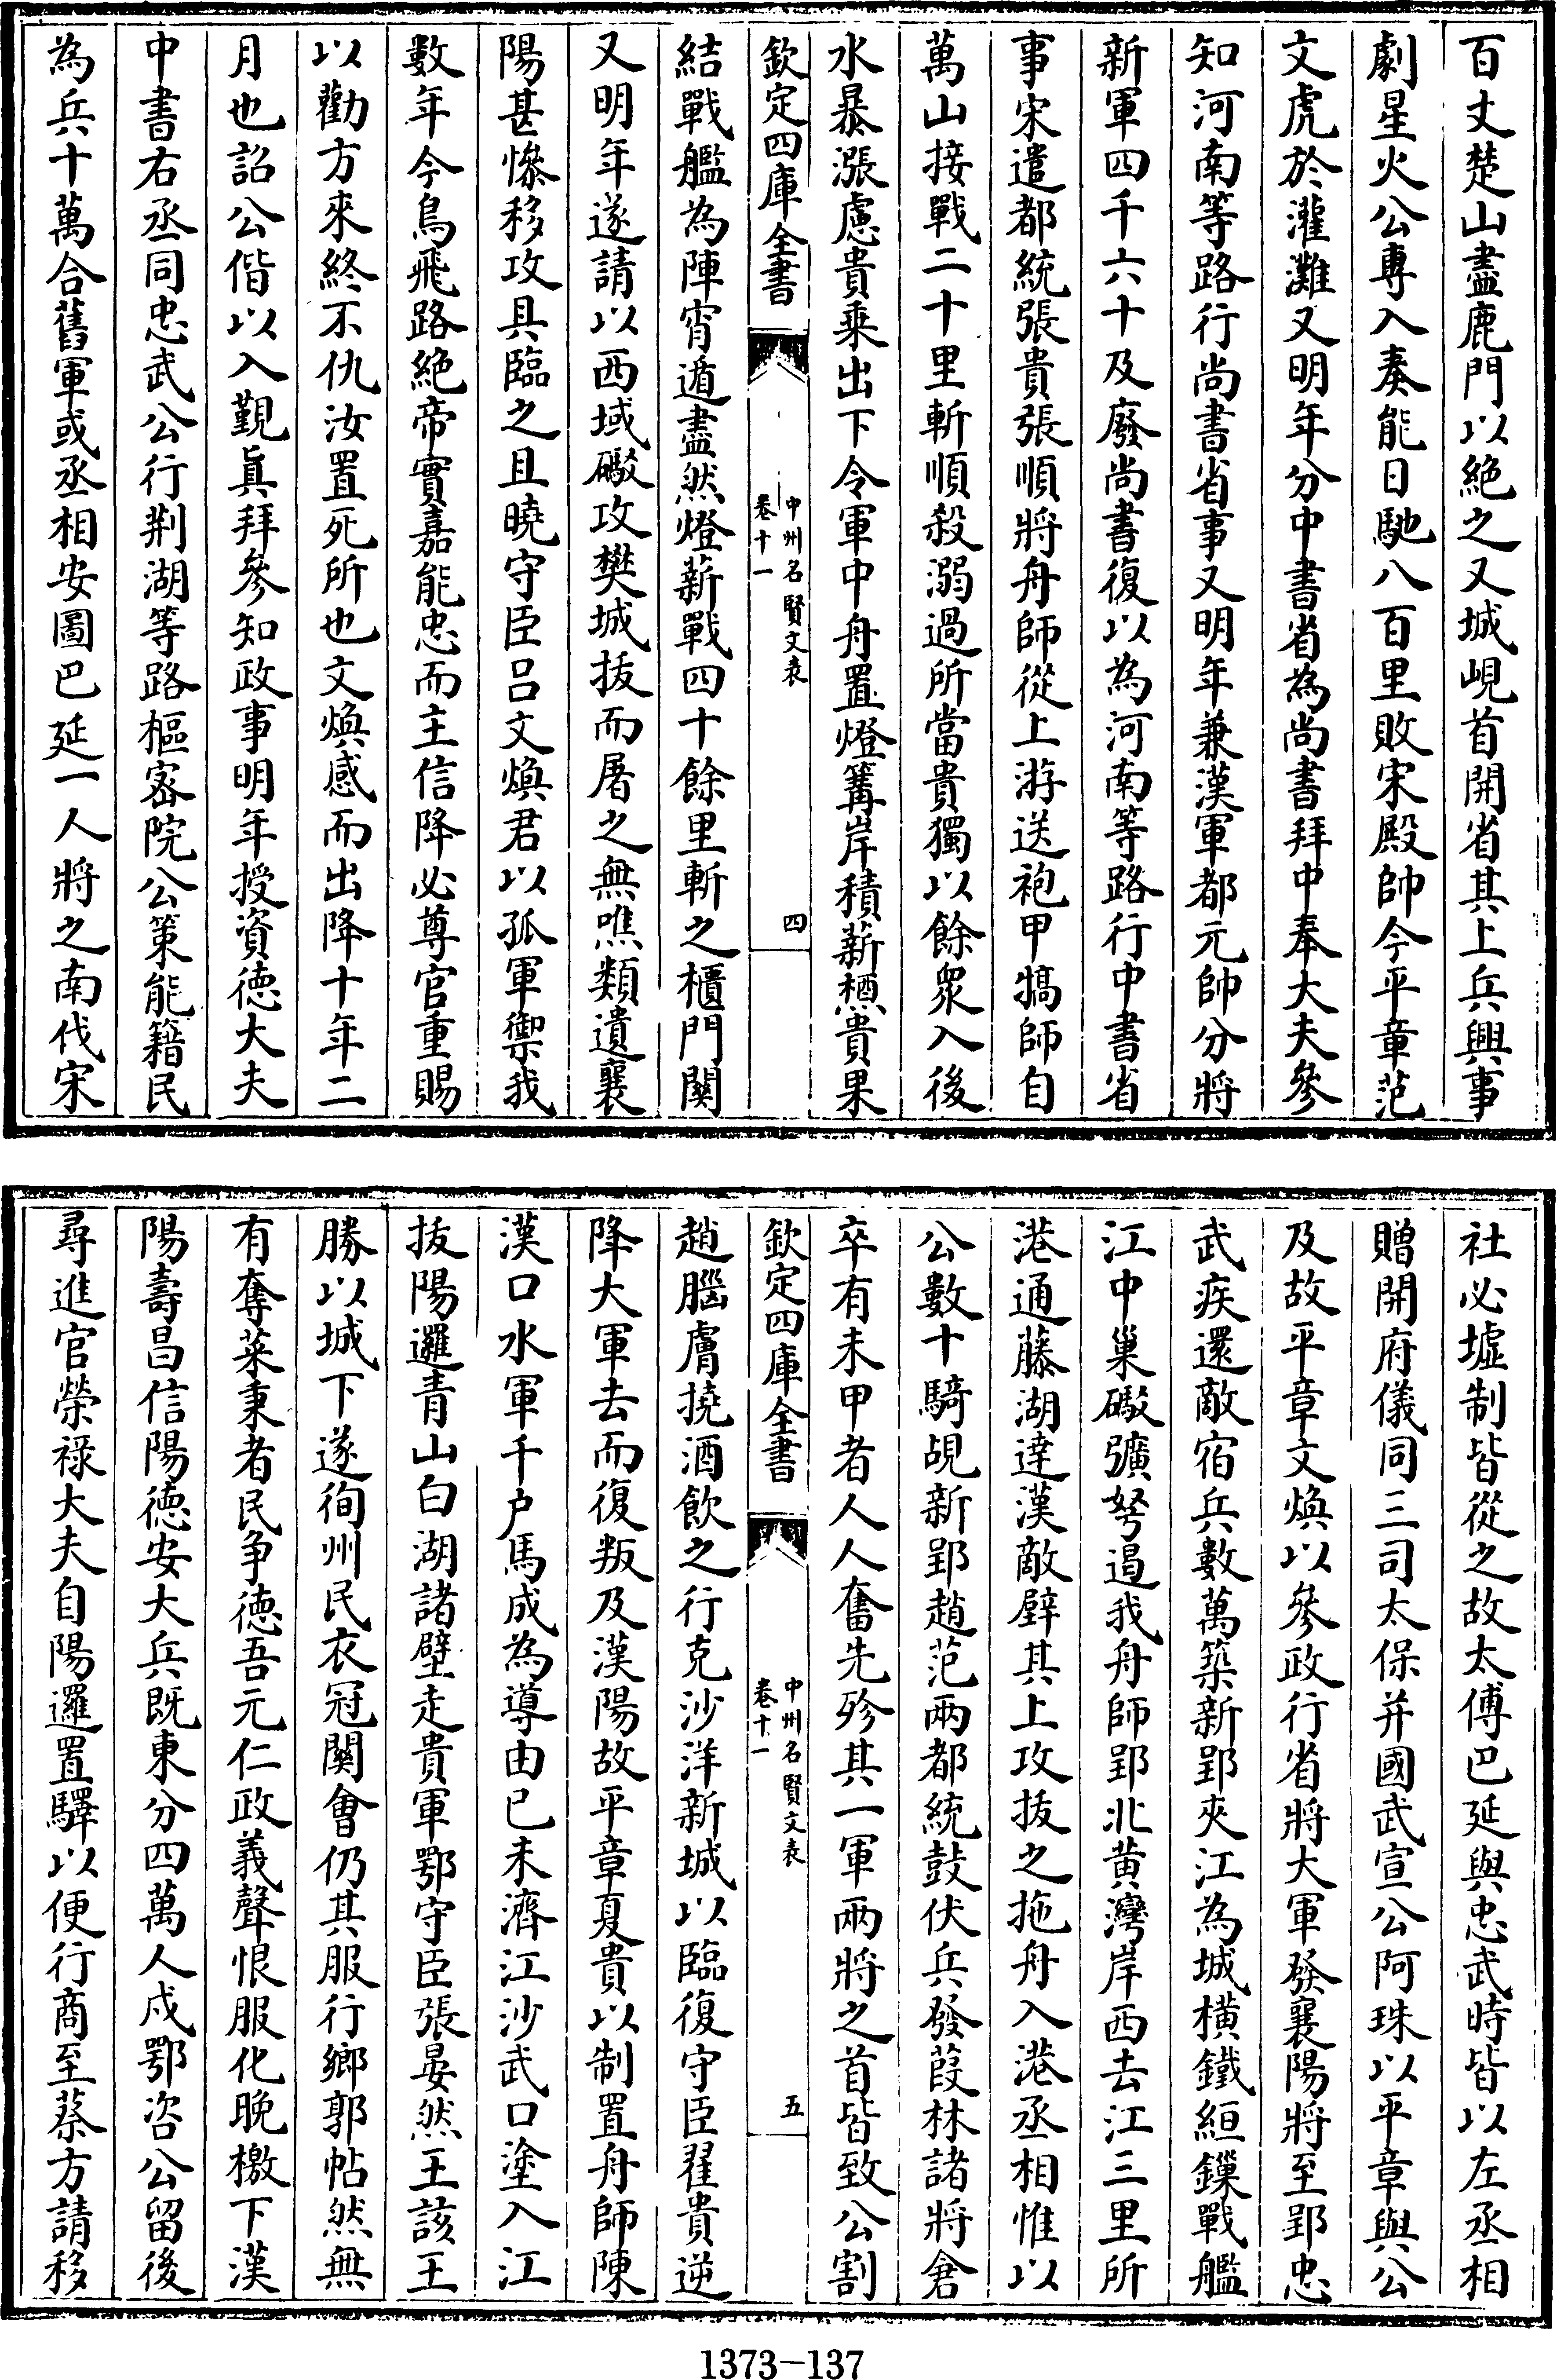 百丈楚山盡鹿門以絶之又城峴首開省其上兵興事
劇星火公專入奏能日馳八百里敗宋殿帥今平章范
文虎於灌灘又明年分中書省為尚書拜中奉大夫參
知河南等路行尚書省事又明年兼漢軍都元帥分將
新軍四千六十及廢尚書復以為河南等路行中書省
事宋遣都統張貴張順將舟師從上游送袍甲犒師自
萬山接戰二十里斬順殺溺過所當貴獨以餘衆入後
水暴漲慮貴乘出下令軍中舟置燈篝岸積薪槱貴果
欽定四庫全書
中州名賢文表
卷十一
四
結戰艦為陣宵遁盡然燈薪戰四十餘里斬之櫃門關
又明年遂請以西域礮攻樊城拔而屠之無噍類遺襄
陽甚慘移攻具臨之且曉守臣吕文煥君以孤軍禦我
數年今鳥飛路絶帝實嘉能忠而主信降必尊官重賜
以勸方來終不仇汝置死所也文煥感而出降十年二
月也詔公偕以入覲真拜參知政事明年授資德大夫
中書右丞同忠武公行荆湖等路樞密院公策能籍民
為兵十萬合舊軍或丞相安圖巴延一人將之南伐宋
社必墟制皆從之故太傅巴延與忠武時皆以左丞相
贈開府儀同三司太保并國武宣公阿珠以平章與公
及故平章文煥以參政行省將大軍發襄陽將至郢忠
武疾還敵宿兵數萬築新郢夾江為城橫鐵絙鏁戰艦
江中巢礮彍弩遏我舟師郢北黄灣岸西去江三里所
港通藤湖逹漢敵壁其上攻拔之拖舟入港丞相惟以
公數十騎覘新郢趙范兩都統鼓伏兵發葭林諸將倉
卒有未甲者人人奮先殄其一軍兩將之首皆致公割
欽定四庫全書
中州名賢文表
卷十一
五
趙腦膚撓酒飲之行克沙洋新城以臨復守臣翟貴逆
降大軍去而復叛及漢陽故平章夏貴以制置舟師陳
漢口水軍千户馬成為導由已未濟江沙武口塗入江
拔陽邏青山白湖諸壁走貴軍鄂守臣張晏然王該王
勝以城下遂徇州民衣冠闤會仍其服行鄉郭帖然無
有奪菜秉者民争德吾元仁政義聲恨服化晚檄下漢
陽壽昌信陽德安大兵既東分四萬人戍鄂咨公留後
尋進官榮禄大夫自陽邏置驛以便行商至蔡方請移
1373-137